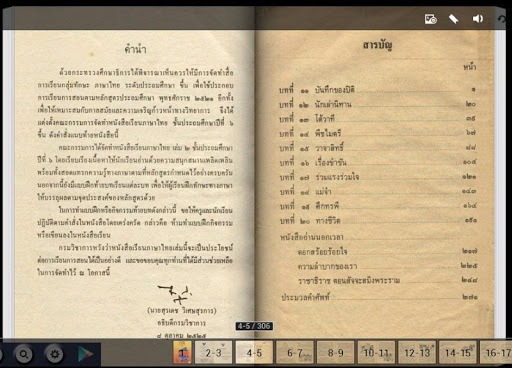 คำนำ
ด้วยกระทรวงศึกษาธิการได้พิจารณาเห็นควรให้มีการจัดทำสื่อ
การเรียนกลุ่มทักษะ ภาษาไทย ระดับประถมศึกษา ขึ้น เพื่อใช้ประกอบ
การเรียนการสอนตามหลักสูตรประถมศึกษา พุทธศักราช ๒๕๒๑ อีกทั้ง
เพื่อให้เหมาะสมกับกาลสมัยและความเจริญก้าวหน้าทางวิทยาการ จึงได้
แต่งตั้งคณะกรรมการจัดทำหนังสือเรียนภาษาไทย ชั้นประถมศึกษาปีที่ ๖
ขึ้น ดังคำสั่งแนบท้ายหนังสือนี้
คณะกรรมการได้จัดทำหนังสือเรียนภาษาไทย เล่ม ๒ ชั้นประถมศึกษา
ปีที่ ๖ โดยเรียบเรียงเนื้อหาให้นักเรียนอ่านด้วยความสนุกสนานเพลิดเพลิน
พร้อมทั้งสอดแทรกความรู้ทางภาษาตามที่หลักสูตรกำหนดไว้อย่างครบครัน
นอกจากนี้ยังมีแบบฝึกท้ายบทเรียนแต่ละบท เพื่อให้ผู้เรียนฝึกทักษะทางภาษา
ให้บรรลุผลตามจุดประสงค์ของหลักสูตรด้วย
ในการทำแบบฝึกหรือกิจกรรมท้ายบทดังกล่าวนี้ ขอให้ครูและนักเรียน
ปฏิบัติตามคำสั่งในหนังสือโดยเคร่งครัด กล่าวคือ ห้ามทำแบบฝึกกิจกรรม
หรือเขียนลงในหนังสือเรียน
กรมวิชาการหวังว่าหนังสือเรียนภาษาไทยเล่มนี้จะเป็นประโยชน์
ต่อการเรียนการสอนได้เป็นอย่างดี และขอขอบคุณทุกท่านที่ได้มีส่วนช่วยเหลือ
ในการจัดทำไว้ ณ โอกาสนี้
(นายสุรเดช วิเศษสุรการ)
อธิบดีกรมวิชาการ
๘ ตุลาคม ๒๕๒๕
สารบัญ
หน้า
บทที่ ๑๑ บันทึกของปิติ ๑
บทที่ ๑๒ นักเล่านิทาน ๒๐
บทที่ ๑๓ โต้วาที ๓๕
บทที่ ๑๔ พืชไมตรี ๖๗
บทที่ ๑๕ วาจาสิทธิ์ ๘๘
บทที่ ๑๖ เรื่องขำขัน ๑๐๔
บทที่ ๑๗ ร่วมแรงร่วมใจ ๑๒๑
บทที่ ๑๘ แม่จ๋า ๑๔๓
บทที่ ๑๙ ศึกทรพี ๑๖๔
บทที่ ๒๐ ทางชีวิต ๑๙๑
หนังสืออ่านนอกเวลา
ดอกสร้อยร้อยใจ ๒๑๗
ความลำบากของเรา ๒๒๕
ราชาธิราช ตอนสัจจะสมิงพระราม ๒๔๘
ประมวลคำศัพท์ ๒๗๑
4-5 / 306
1 2-3 4-5 6-7 8-9 10-11 12-13 14-15 16-17